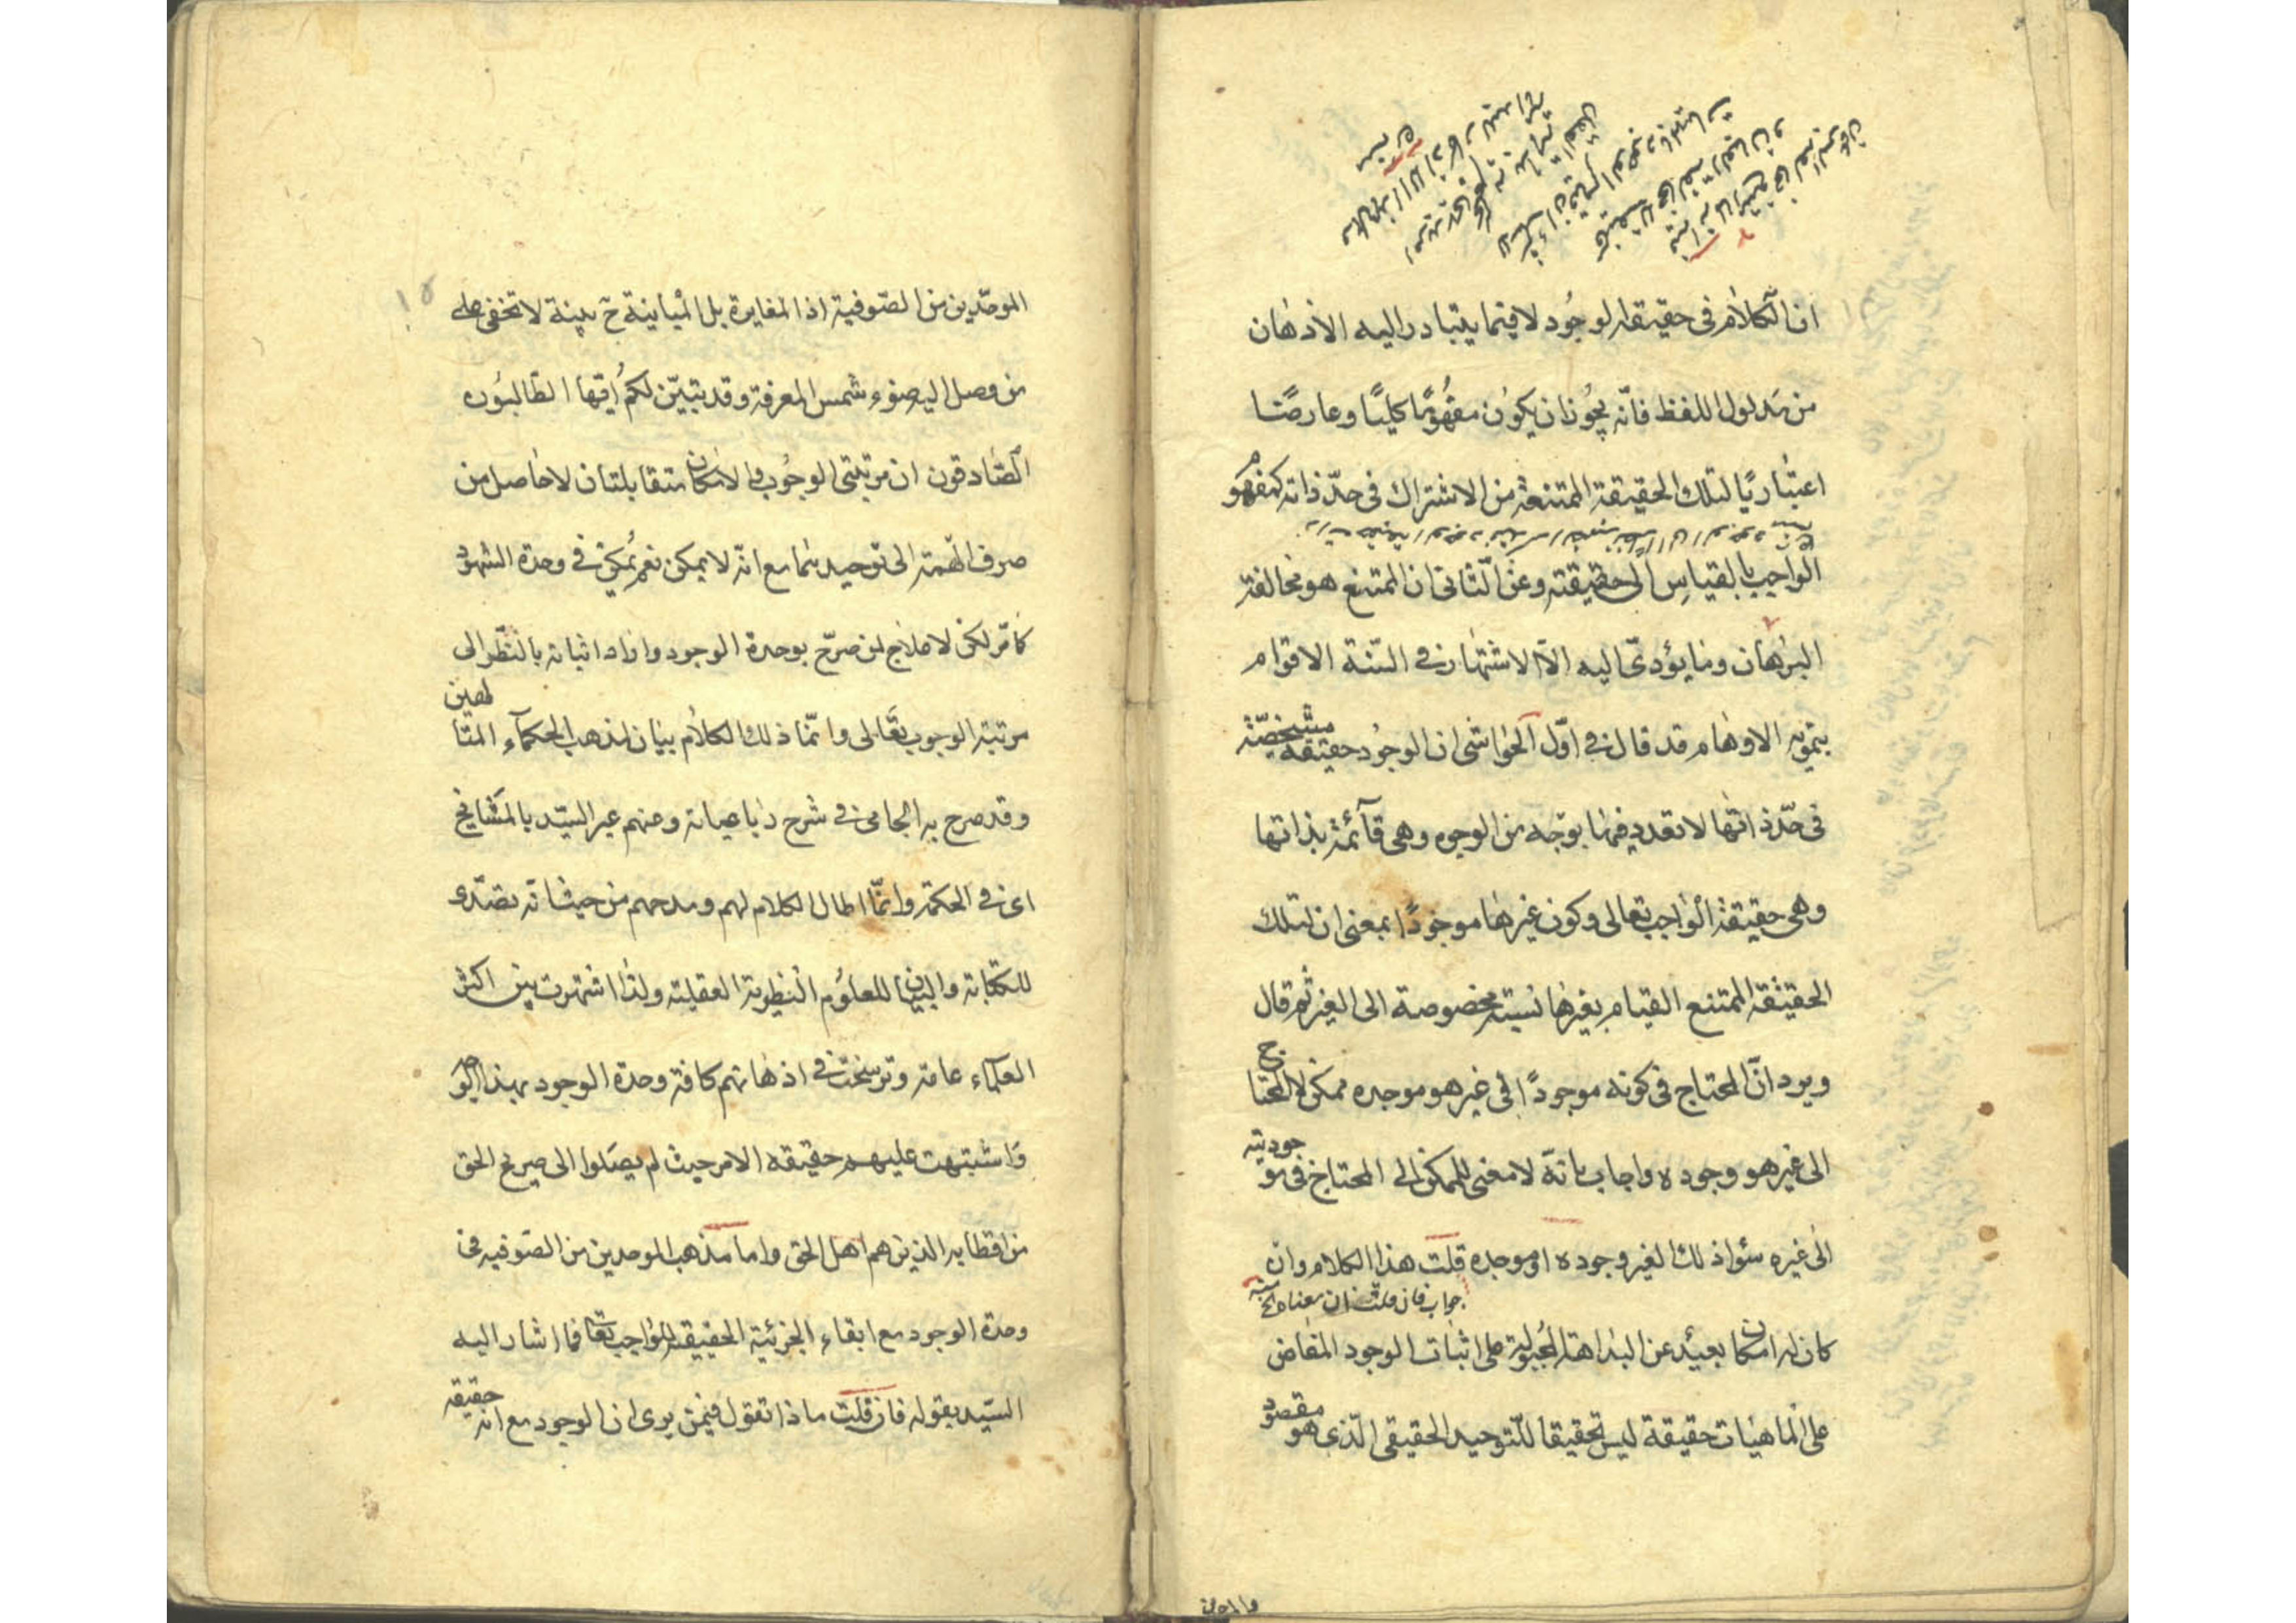 ان الكلام في حقيقة الوجود لا فيما يتبادر اليه الاذهان
من مدلول اللفظ فانّه يجوز ان يكون مفهومًا كليًا وعارضًا
اعتباريًا لتلك الحقيقة الممتنعة من الاشتراك في حدّ ذاته كمفهوم
الواجب بالقياس الى حقيقته وعن الثاني ان الممتنع هو مخالفة
البرهان وما يؤدّى اليه الا الاشتهار في السنة الاقوام
بتمويه الاوهام قد قال في اوّل الحواشى ان الوجود حقيقة مشخصّة
في حدّ ذاتها لا تعدد فيها بوجه من الوجوه وهي قائمة بذاتها
وهي حقيقة الواجب تعالى وكون غيرها موجودًا بمعنى ان لتلك
الحقيقة الممتنع القيام بغيرها نسبة مخصوصة الى الغير ثم قال
ويرد انّ المحتاج في كونه موجودًا الى غير هو موجده ممكن لا المحتاج
الى غير هو وجوده واجاب بانّه لا معنى للممكن الا المحتاج في موجوديته
الى غيره سواء ذلك الغير وجوده او موجده قلت هذا الكلام وان
جواب فان قلت ان معناه
كان له امكان بعيد عن البداهة المجبولة على اثبات الوجود المفاض
على الماهيات حقيقة ليس تحقيقا للتوحيد الحقيقي الّذي هو مقصود
١٥
الموحّدين من الصّوفية اذ المغايرة بل المباينة ح بينة لا تخفى على
من وصل اليه ضوء شمس المعرفة وقد تبيّن لكم ايّها الطّالبون
الصّادقون ان مرتبتى الوجوب والامكان متقابلتان لا حاصل من
صرف الهّمة الى توحيدهما مع انّه لا يمكن نعم يمكن في وحدة الشهود
كما مّر لكن لا علاج لمن صرّح بوحدة الوجود واراد اثباته بالنّظر الى
مرتبة الوجوب تعالى وانّما ذلك الكلام بيان لمذهب الحكماء المتالهين
وقد صرح به الجامى في شرح رباعياته وعنهم عبر السيّد بالمشايخ
اى في الحكمة وانّما اطال الكلام لهم ومدحهم من حيث انّه تصدّى
للكتابة والبيان للعلوم النظرية العقلية ولذا اشتهرت بين اكثر
العلماء عامة وترسخت في اذهانهم كافة وحدة الوجود بهذا الوجه
واشتبهت عليهم حقيقة الامر حيث لم يصلوا الى صريح الحق
من اقطابه الذين هم اهل الحق واما مذهب الموحدين من الصوفيه في
وحدة الوجود مع ابقاء الجزئية الحقيقة للواجب تعالى فما اشار اليه
السيّد بقوله فان قلت ماذا تقول فيمن يرى ان الوجود مع انه حقيقة